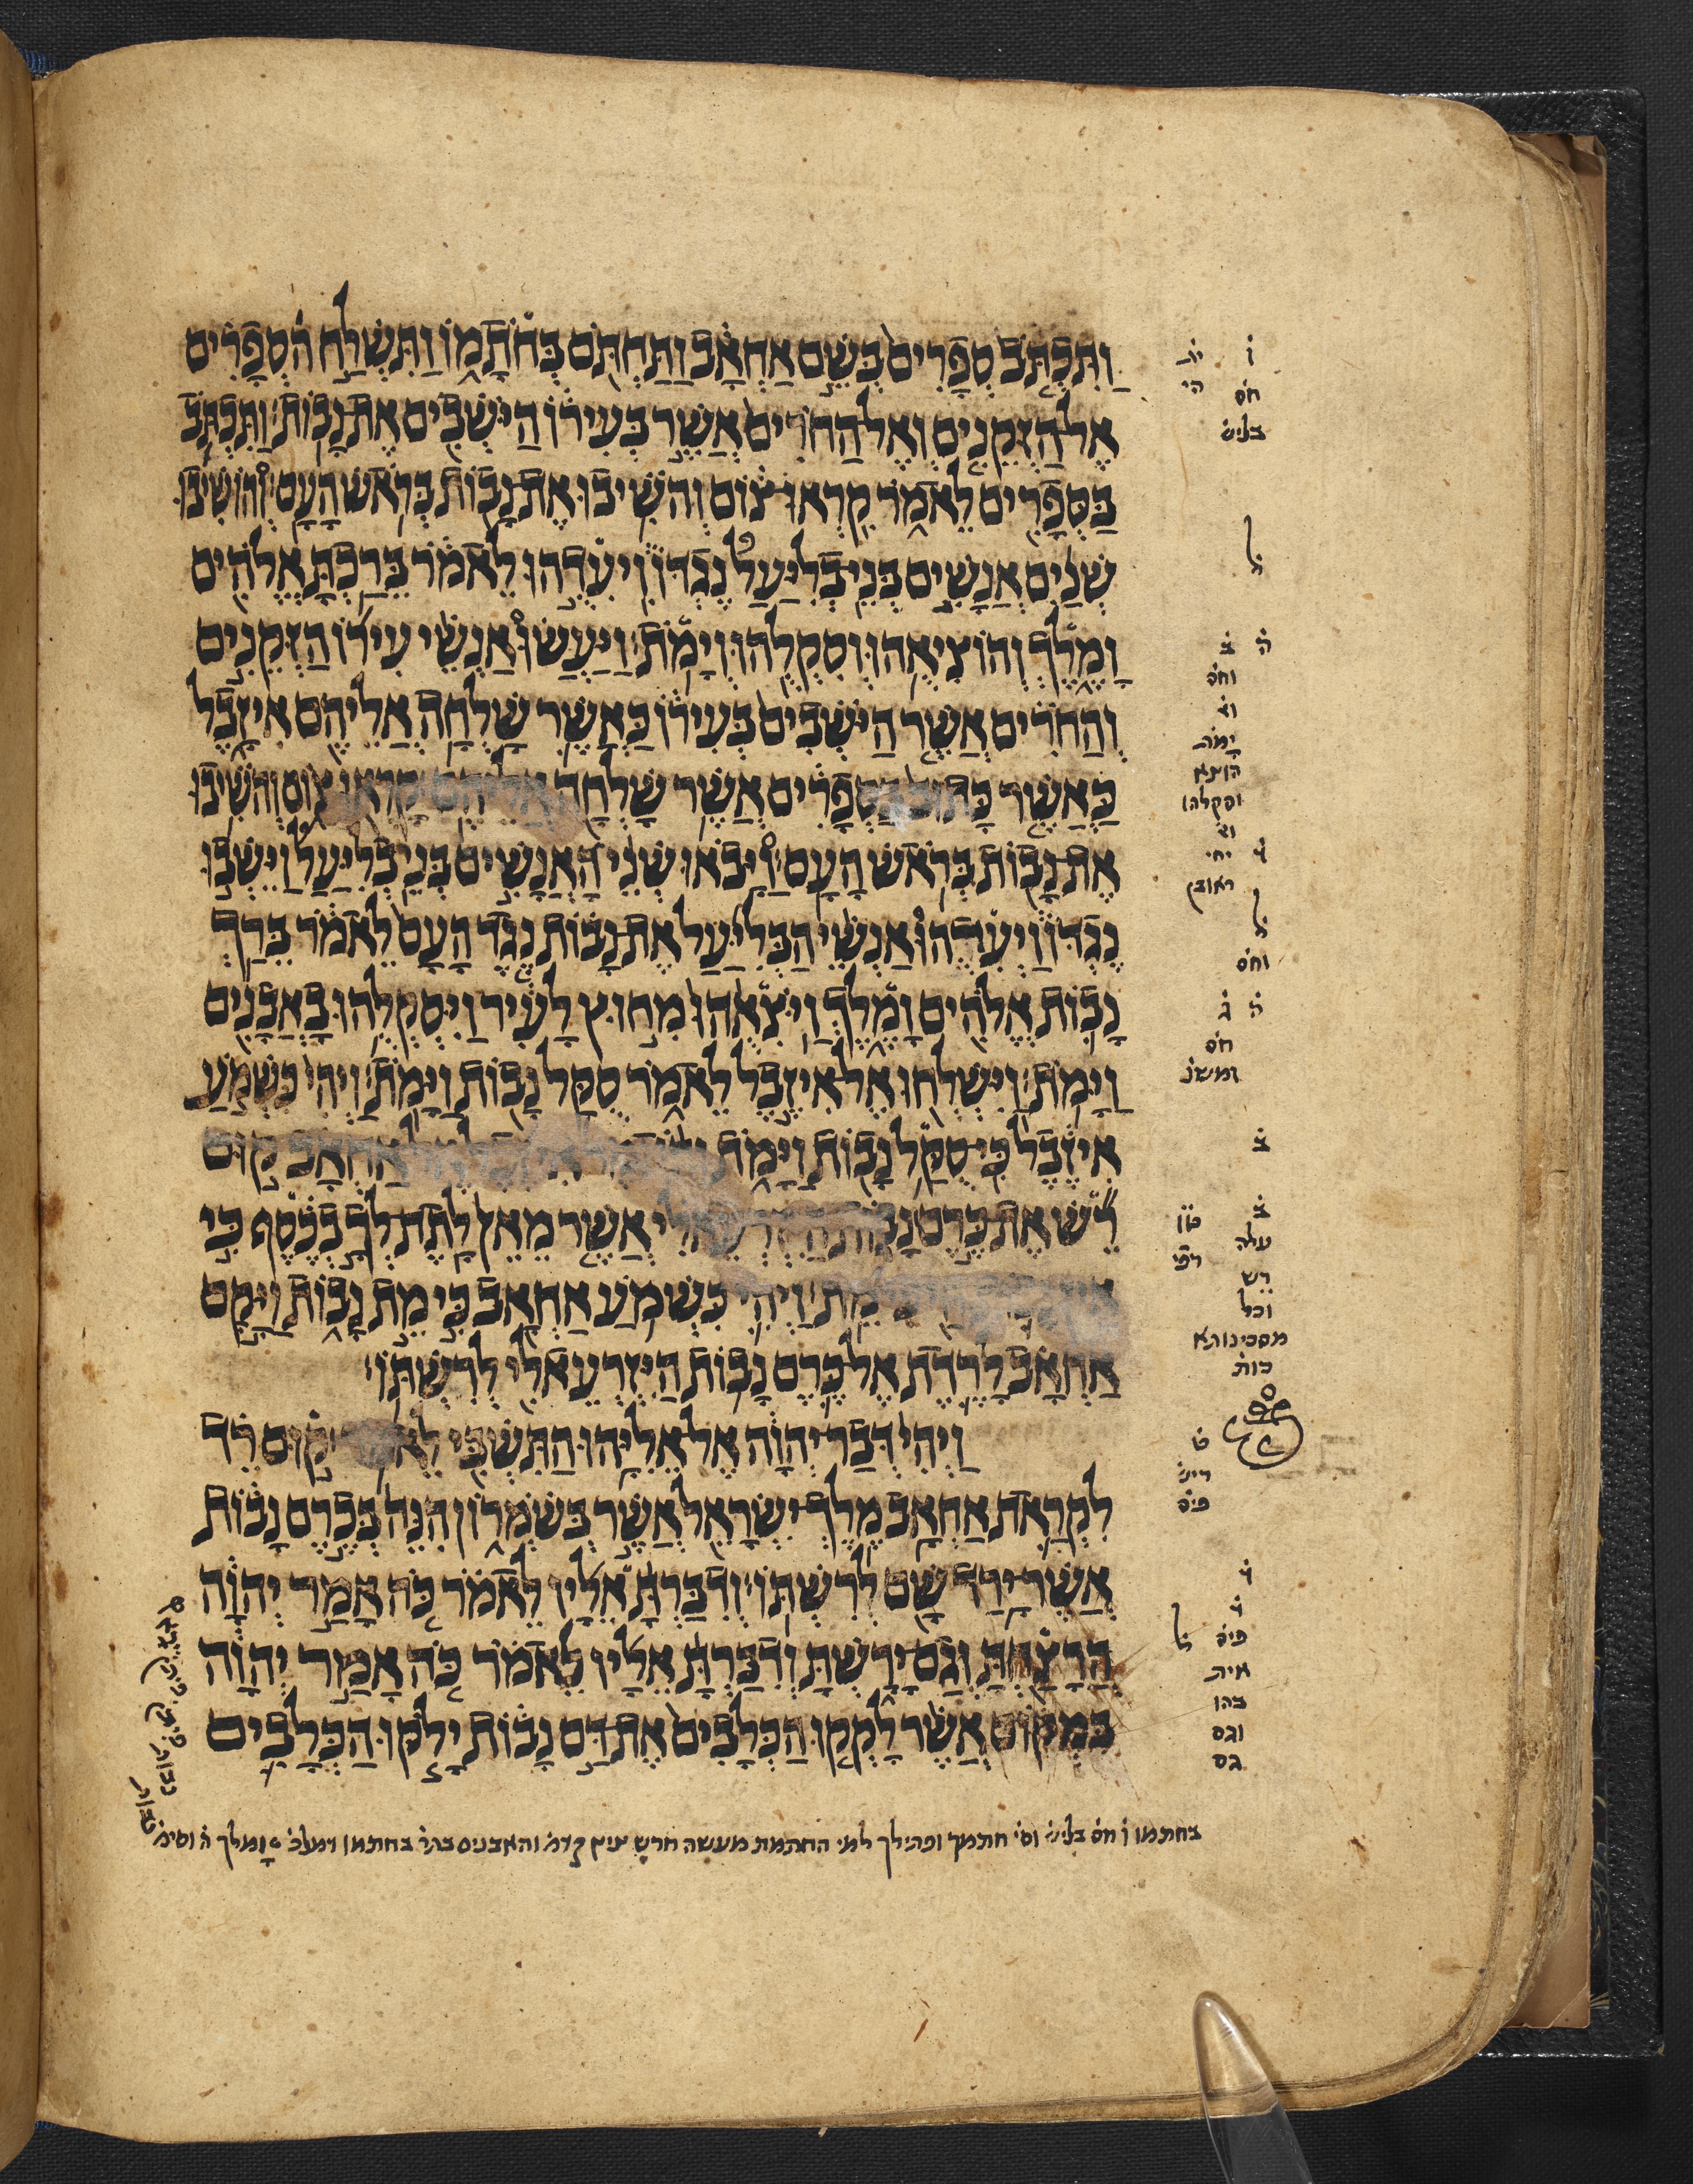 וַתִּכְתֹּב סְפָרִים בְּשֵׁם אַחְאָב וַתַּחְתֹּם בְּחֹתָמוֹ וַתִּשְׁלַח הסְפָרִים
אֶל הַזְּקֵנִים וְאֶל הַחֹרִים אֲשֶׁר בְּעִירוֹ הַיֹּשְׁבִים אֶת נָבוֹת׃ וַתִּכְתֹּב
בַּסְּפָרִים לֵאמֹר קִרְאוּ צוֹם וְהֹשִׁיבוּ אֶת נָבוֹת בְּרֹאשׁ הָעָם׃ וְהוֹשִׁיבוּ
שְׁנַיִם אֲנָשִׁים בְּנֵי בְלִיַּעַל נֶגְדּוֹ וִיעִדֻהוּ לֵאמֹר בֵּרַכְתָּ אֱלֹהִים
וָמֶלֶךְ וְהוֹצִיאֻהוּ וְסִקְלֻהוּ וְיָמֹת׃ וַיַּעֲשׂוּ אַנְשֵׁי עִירוֹ הַזְּקֵנִים
וְהַחֹרִים אֲשֶׁר הַיֹּשְׁבִים בְּעִירוֹ כַּאֲשֶׁר שָׁלְחָה אֲלֵיהֶם אִיזָבֶל
כַּאֲשֶׁר כָּתוּב בַּסְּפָרִים אֲשֶׁר שָׁלְחָה אֲלֵיהֶם׃ קָרְאוּ צוֹם וְהֹשִׁיבוּ
אֶת נָבוֹת בְּרֹאשׁ הָעָם׃ וַיָּבֹאוּ שְׁנֵי הָאֲנָשִׁים בְּנֵי בְלִיַּעַל וַיֵּשְׁבוּ
נֶגְדּוֹ וַיְעִדֻהוּ אַנְשֵׁי הַבְּלִיַּעַל אֶת נָבוֹת נֶגֶד הָעָם לֵאמֹר בֵּרַךְ
נָבוֹת אֱלֹהִים וָמֶלֶךְ וַיֹּצִאֻהוּ מִחוּץ לָעִיר וַיִּסְקְלֻהוּ בָאֲבָנִים
וַיָּמֹת׃ וַיִּשְׁלְחוּ אֶל אִיזֶבֶל לֵאמֹר סֻקַּל נָבוֹת וַיָּמֹת׃ וַיְהִי כִּשְׁמֹעַ
אִיזֶבֶל כִּי סֻקַּל נָבוֹת וַיָּמֹת אַחְאָב קוּם
רֵשׁ אֶת כֶּרֶם נָבוֹת הַיִּזְרְעֵאלִי אֲשֶׁר מֵאֵן לָתֶת לְךָ בְכֶסֶף כִּי
מֵת׃ וַיְהִי כִּשְׁמֹעַ אַחְאָב כִּי מֵת נָבוֹת וַיָּקָם
אַחְאָב לָרֶדֶת אֶל כֶּרֶם נָבוֹת הַיִּזְרְעֵאלִי לְרִשְׁתּוֹ׃
וַיְהִי דְּבַר יְהוָה אֶל אֵלִיָּהוּ הַתִּשְׁבִּי לֵאמֹר׃ קוּם רֵד
לִקְרַאת אַחְאָב מֶלֶךְ יִשְׂרָאֵל אֲשֶׁר בְּשֹׁמְרוֹן הִנֵּה בְּכֶרֶם נָבוֹת
אֲשֶׁר יָרַד שָׁם לְרִשְׁתּוֹ׃ וְדִבַּרְתָּ אֵלָיו לֵאמֹר כֹּה אָמַר יְהוָה
הֲרָצַחְתָּ וְגַם יָרָשְׁתָּ וְדִבַּרְתָּ אֵלָיו לֵאמֹר כֹּה אָמַר יְהוָה
בִּמְקוֹם אֲשֶׁר לָקְקוּ הַכְּלָבִים אֶת דַּם נָבוֹת יָלֹקּוּ הַכְּלָבִים
ו
חס
בליש
ל
ה
ב
וחס
יָמֹת
הוצא
וסקלהו
ראובן
ל
וחס
ה ג
חס
ומשנ
ב
ב
עלה
רֵש
וכל
מסכינותא
כות
ל
וגם
גם
בחתמו ו חס בליש וסי חתמך ופתילך למי החתמת מעשה חרש ציץ והאבנים בחתמו ומלך ה